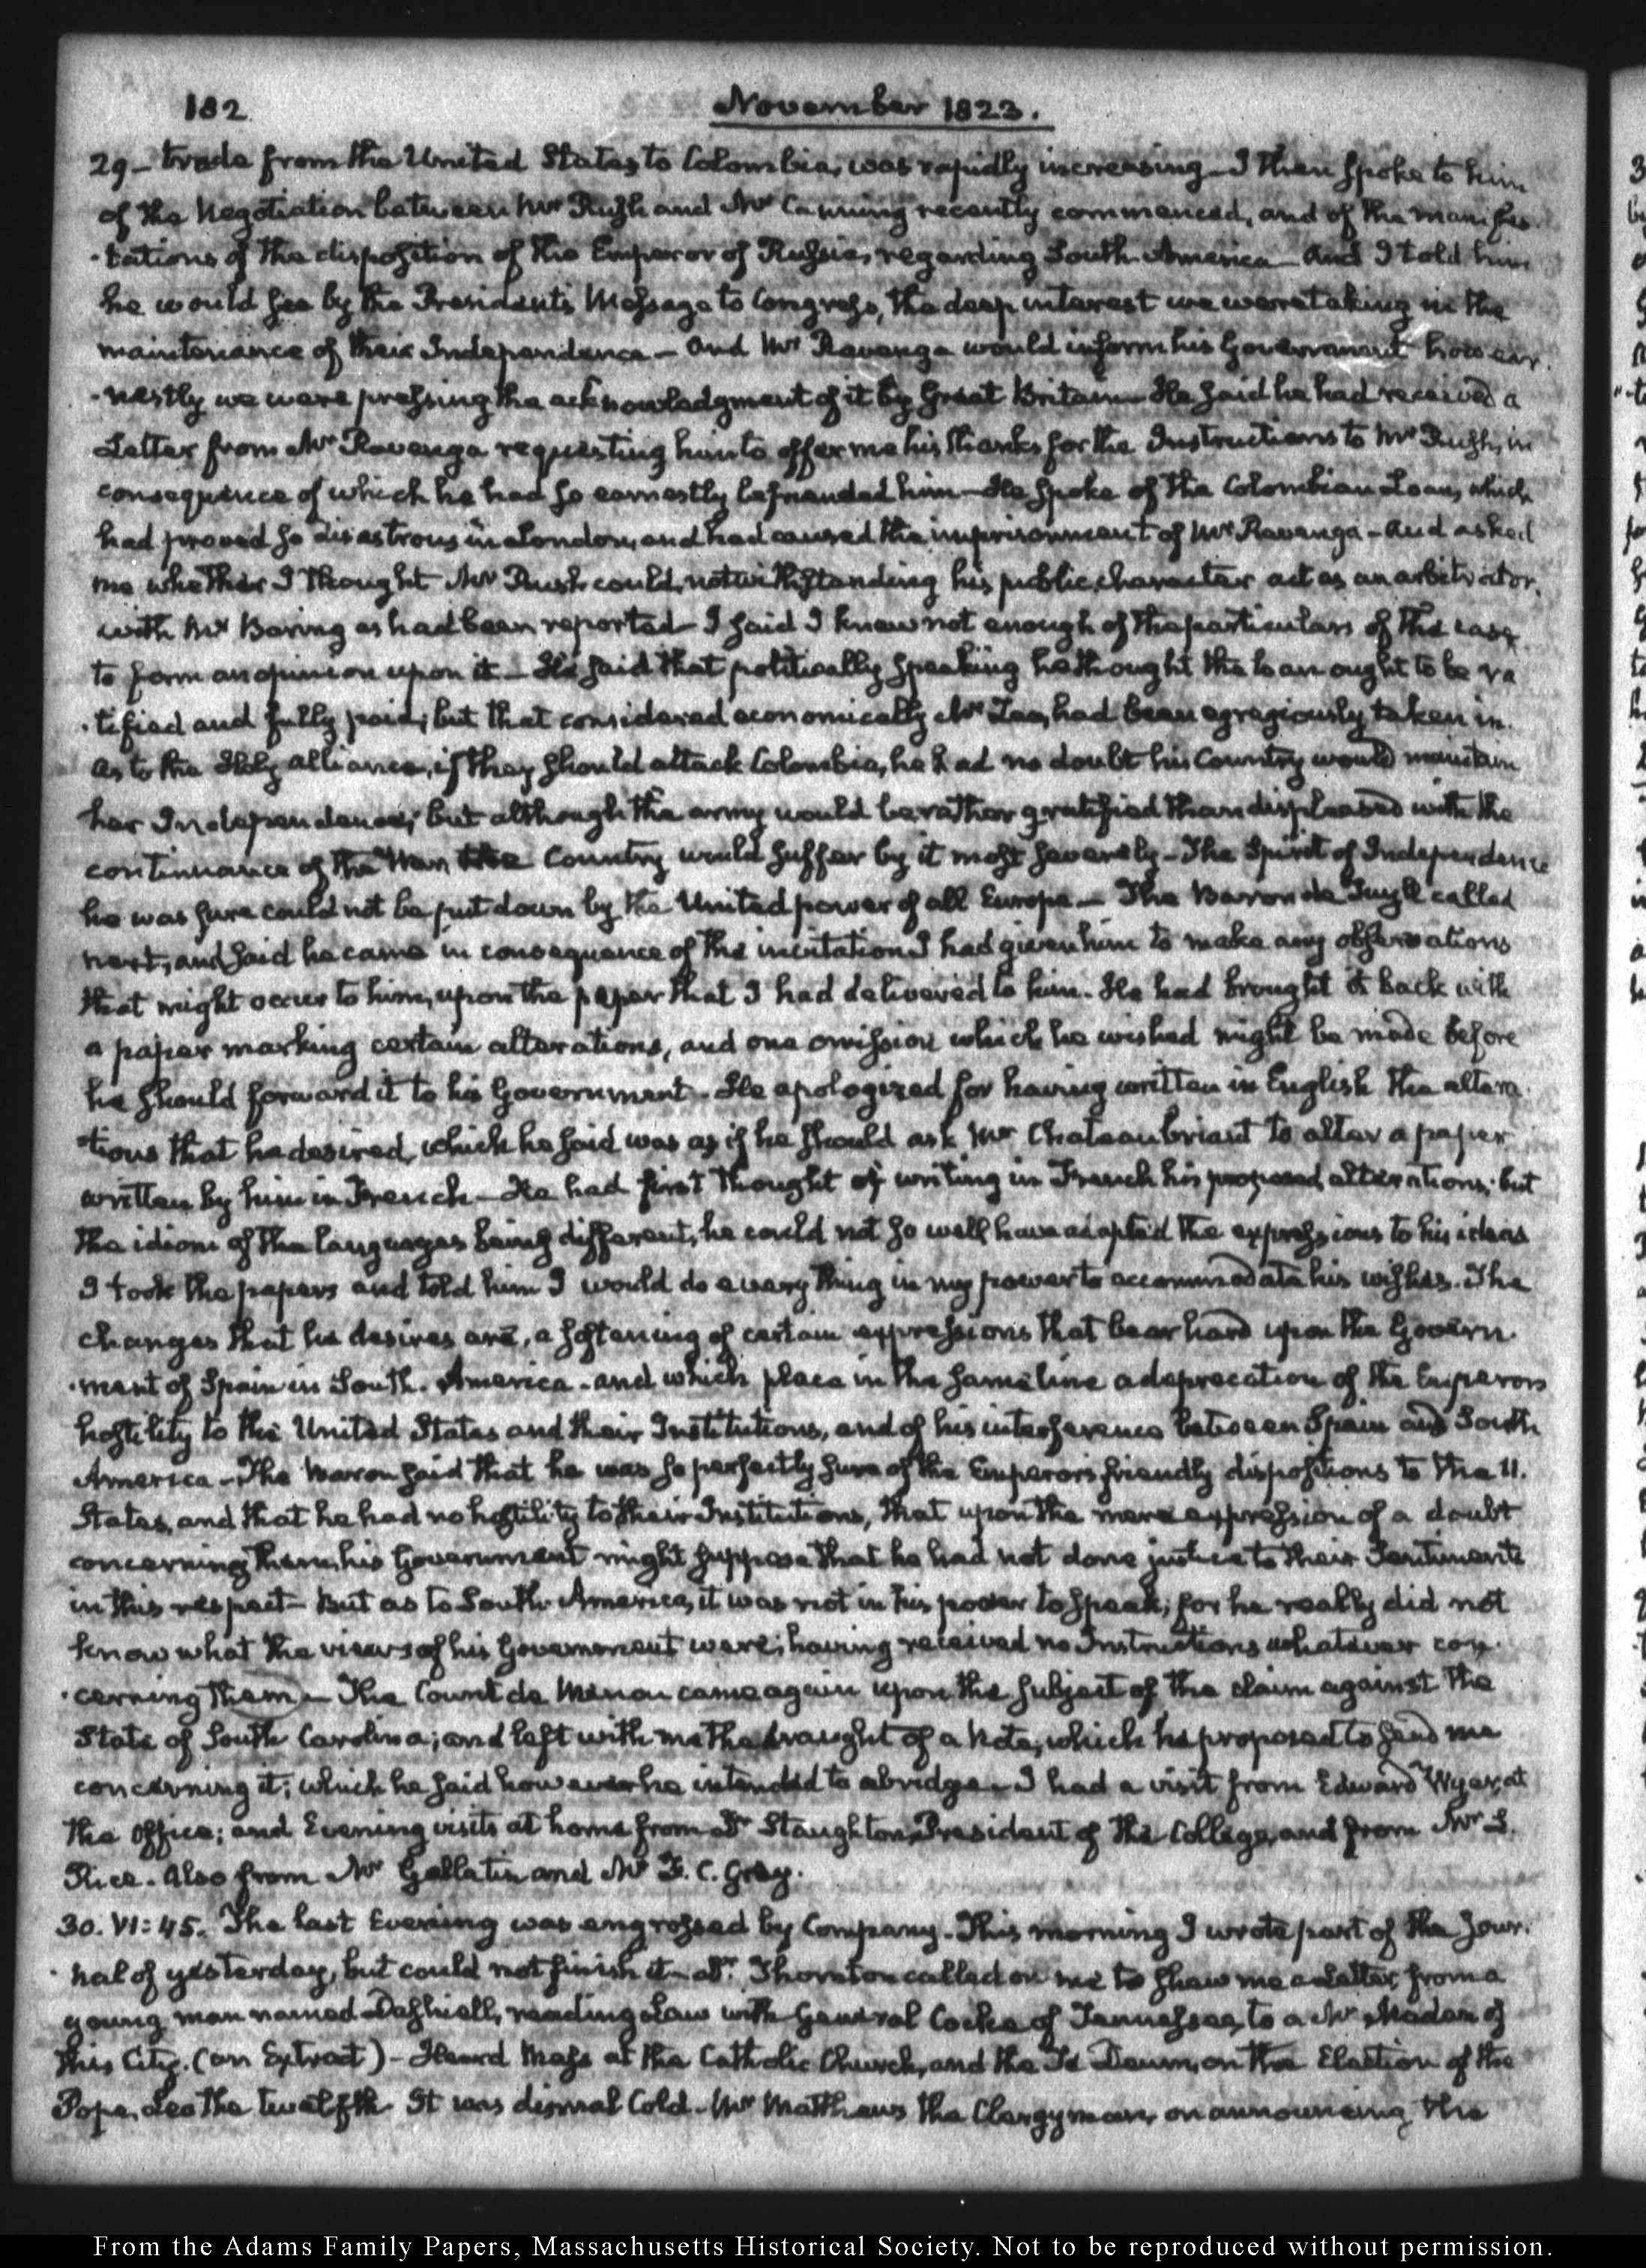 182
November 1823.
29 – trade from the United States to Colombia, was rapidly increasing – I then spoke to him
of the Negotiation between Mr Rush and Mr Canning recently commenced, and of the manifes-
-tations of the disposition of the Emperor of Russia, regarding South-America – And I told him
he would see by the President's Message to Congress, the deep interest we were taking in the
maintenance of their Independence – And Mr Ravenga would inform his Government how ear-
-nestly we were pressing the acknowledgment of it by Great Britain – He said he had received a
Letter from Mr Ravenga requesting him to offer me his thanks for the Instructions to Mr Rush, in
consequence of which he had so earnestly befriended him – He spoke of the Colombian Loan, which
had proved so disastrous in London, and had caused the imprisonment of Mr Ravenga – and asked
me whether I thought Mr Rush could, notwithstanding his public character act as an arbitrator,
with Mr Baring as had been reported – I said I knew not enough of the particulars of the case
to form an opinion upon it – He said that politically speaking he thought the loan ought to be ra
-tified and fully paid; but that considered economically Mr Zea, had been egregiously taken in.
As to the Holy alliance, if they should attack Colombia, he had no doubt his Country would maintain
her Independence; but although the army would be rather gratified than displeased with the
continuance of the War, the Country would suffer by it most severely – The Spirit of Independence
he was sure could not be put down by the United power of all Europe – The Baron de Tuyll called
next, and said he came in consequence of the invitation I had given him to make any observations
that might occur to him, upon the paper that I had delivered to him. He had brought it back with
a paper marking certain alterations, and one omission which he wished might be made before
he should forward it to his Government. He apologized for having written in English the altera-
-tions that he desired, which he said was as if he should ask Mr Chateaubriant to alter a paper
written by him in French – He had first thought of writing in French his proposed alterations; but
the idiom of the languages being different, he could not so well have adapted the expressions to his ideas
I took the papers and told him I would do every thing in my power to accommodate his wishes. The
changes that he desires are, a softening of certain expressions that bear hard upon the Govern-
-ment of Spain in South-America – and which place in the same line a deprecation of the Emperors
hostility to the United States and their Institutions, and of his interference between Spain and South
America – The Baron said that he was so perfectly sure of the Emperor's friendly dispositions to the U.
States, and that he had no hostility to their Institutions, that upon the mere expression of a doubt
concerning them, his Government might suppose that he had not done justice to their Sentiments
in this respect – But as to South-America, it was not in his power to speak; for he really did not
know what the views of his Government were; having received no Instructions whatever con-
-cerning them – The Count de Menou came again upon the subject of the claim against the
State of South Carolina; and left with me the draught of a Note, which he proposed to send me
concerning it; which he said however he intended to abridge – I had a visit from Edward Wyer, at
the Office; and Evening visits at home from Dr Staughton, President of the College, and from Mr L.
Rice. Also from Mr Gallatin and Mr F. C. Gray.
30. VI:45. The last Evening was engrossed by Company. This morning I wrote part of the Jour-
-nal of yesterday, but could not finish it – Dr Thornton called on me to shew me a Letter, from a
young man named Dashiell, reading Law with General Cocke of Tennessee, to a Mr of
this City. (an Extract) – Heard Mass at the Catholic Church, and the Te Deum, on the Election of the
Pope, Leo the twelfth. It was dismal Cold. Mr Matthews the Clergyman, on announcing the
From the Adams Family Papers, Massachusetts Historical Society. Not to be reproduced without permission.